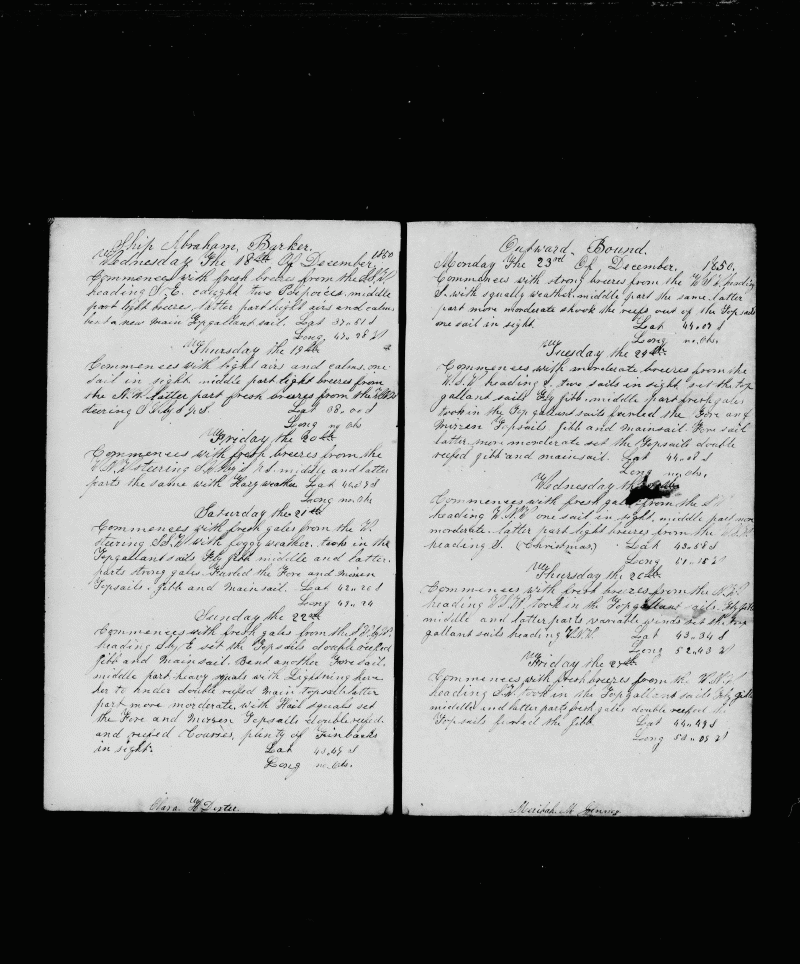 Ship Abraham Barker.
Wednesday The 18th Of December 1850
Commences with fresh breezes from the
heading S.E. caught two Porpoises. middle
part light breezes, latter part light airs and calm.
bent a new main Topgallant sail. Lat 37-51 S
Long 47-28 W
Thursday the 19th
Commences with light airs and calms. one
sail in sight middle part light breezes from
the N.W. latter part fresh breezes from the
steering S by E Lat 38-00 S
Long no obs
Friday the 20th
Commences with fresh breezes from the
steering middle and latter
parts the same with Hazy weather Lat
Long no. obs
Saturday the 21st
Commences with fresh gales from the W.
steering with foggy weather. took in the
Topgallant sails Fly Jibb middle and latter
parts strong gales. Furled the Fore and Mizen
Topsails. Jibb and Mainsail. Lat 42-20 S
Long 49-24
Sunday the 22nd
Commences with fresh gales from the
heading S by E set the Topsails double reefed
Jibb and Mainsail. Bent another Fore sail.
middle part heavy squals with Lightning hove
her to under double reefed Main Topsail latter
part more morderate with Hail squals set
the Fore and Mizzen Topsails double reefed
and reefed Courses, plenty of Finbacks
in sight. Lat 43-47 S
Long no. obs.
Clara
Outward Bound.
Monday The 23rd Of December. 1850.
Commences with strong breezes from the heading
S. with squally weather. middle part the same. latter
part more moderate shook the reefs out of the Topsails
one sail in sight. Lat 44-07 S
Long no. obs.
Tuesday the 24th
Commences with moderate breezes from the
W.S.W heading S. two sails in sight set the top
gallant sails Fly Jibb. middle part fresh gales
took in the Topgallant sails furled the Fore and
Mizzen Topsails Jibb and mainsail. Fore sail
latter more morderate set the Topsails double
reefed Jibb and mainsail. Lat 44-08 S
Long no. obs.
Wednesday the
Commences with fresh gales from the
heading one sail in sight. middle part more
morderate. latter part light breezes from the
heading S. (Christmas) Lat 43-58 S
Long 51-15 W
Thursday the 26th
Commences with fresh breezes from the
heading took in the Topgallant sails Fly Jibb
middle and latter parts variable winds set the Top
gallant sails heading Lat 43-34 S
Long 52-43 W
Friday the 27th
Commences with fresh breezes from the
heading took in the Topgallant sails Fly Jibb
middle and latter parts fresh gales double reefed the
Topsails furled the Jibb. Lat 44-49 S
Long
Meribah. M